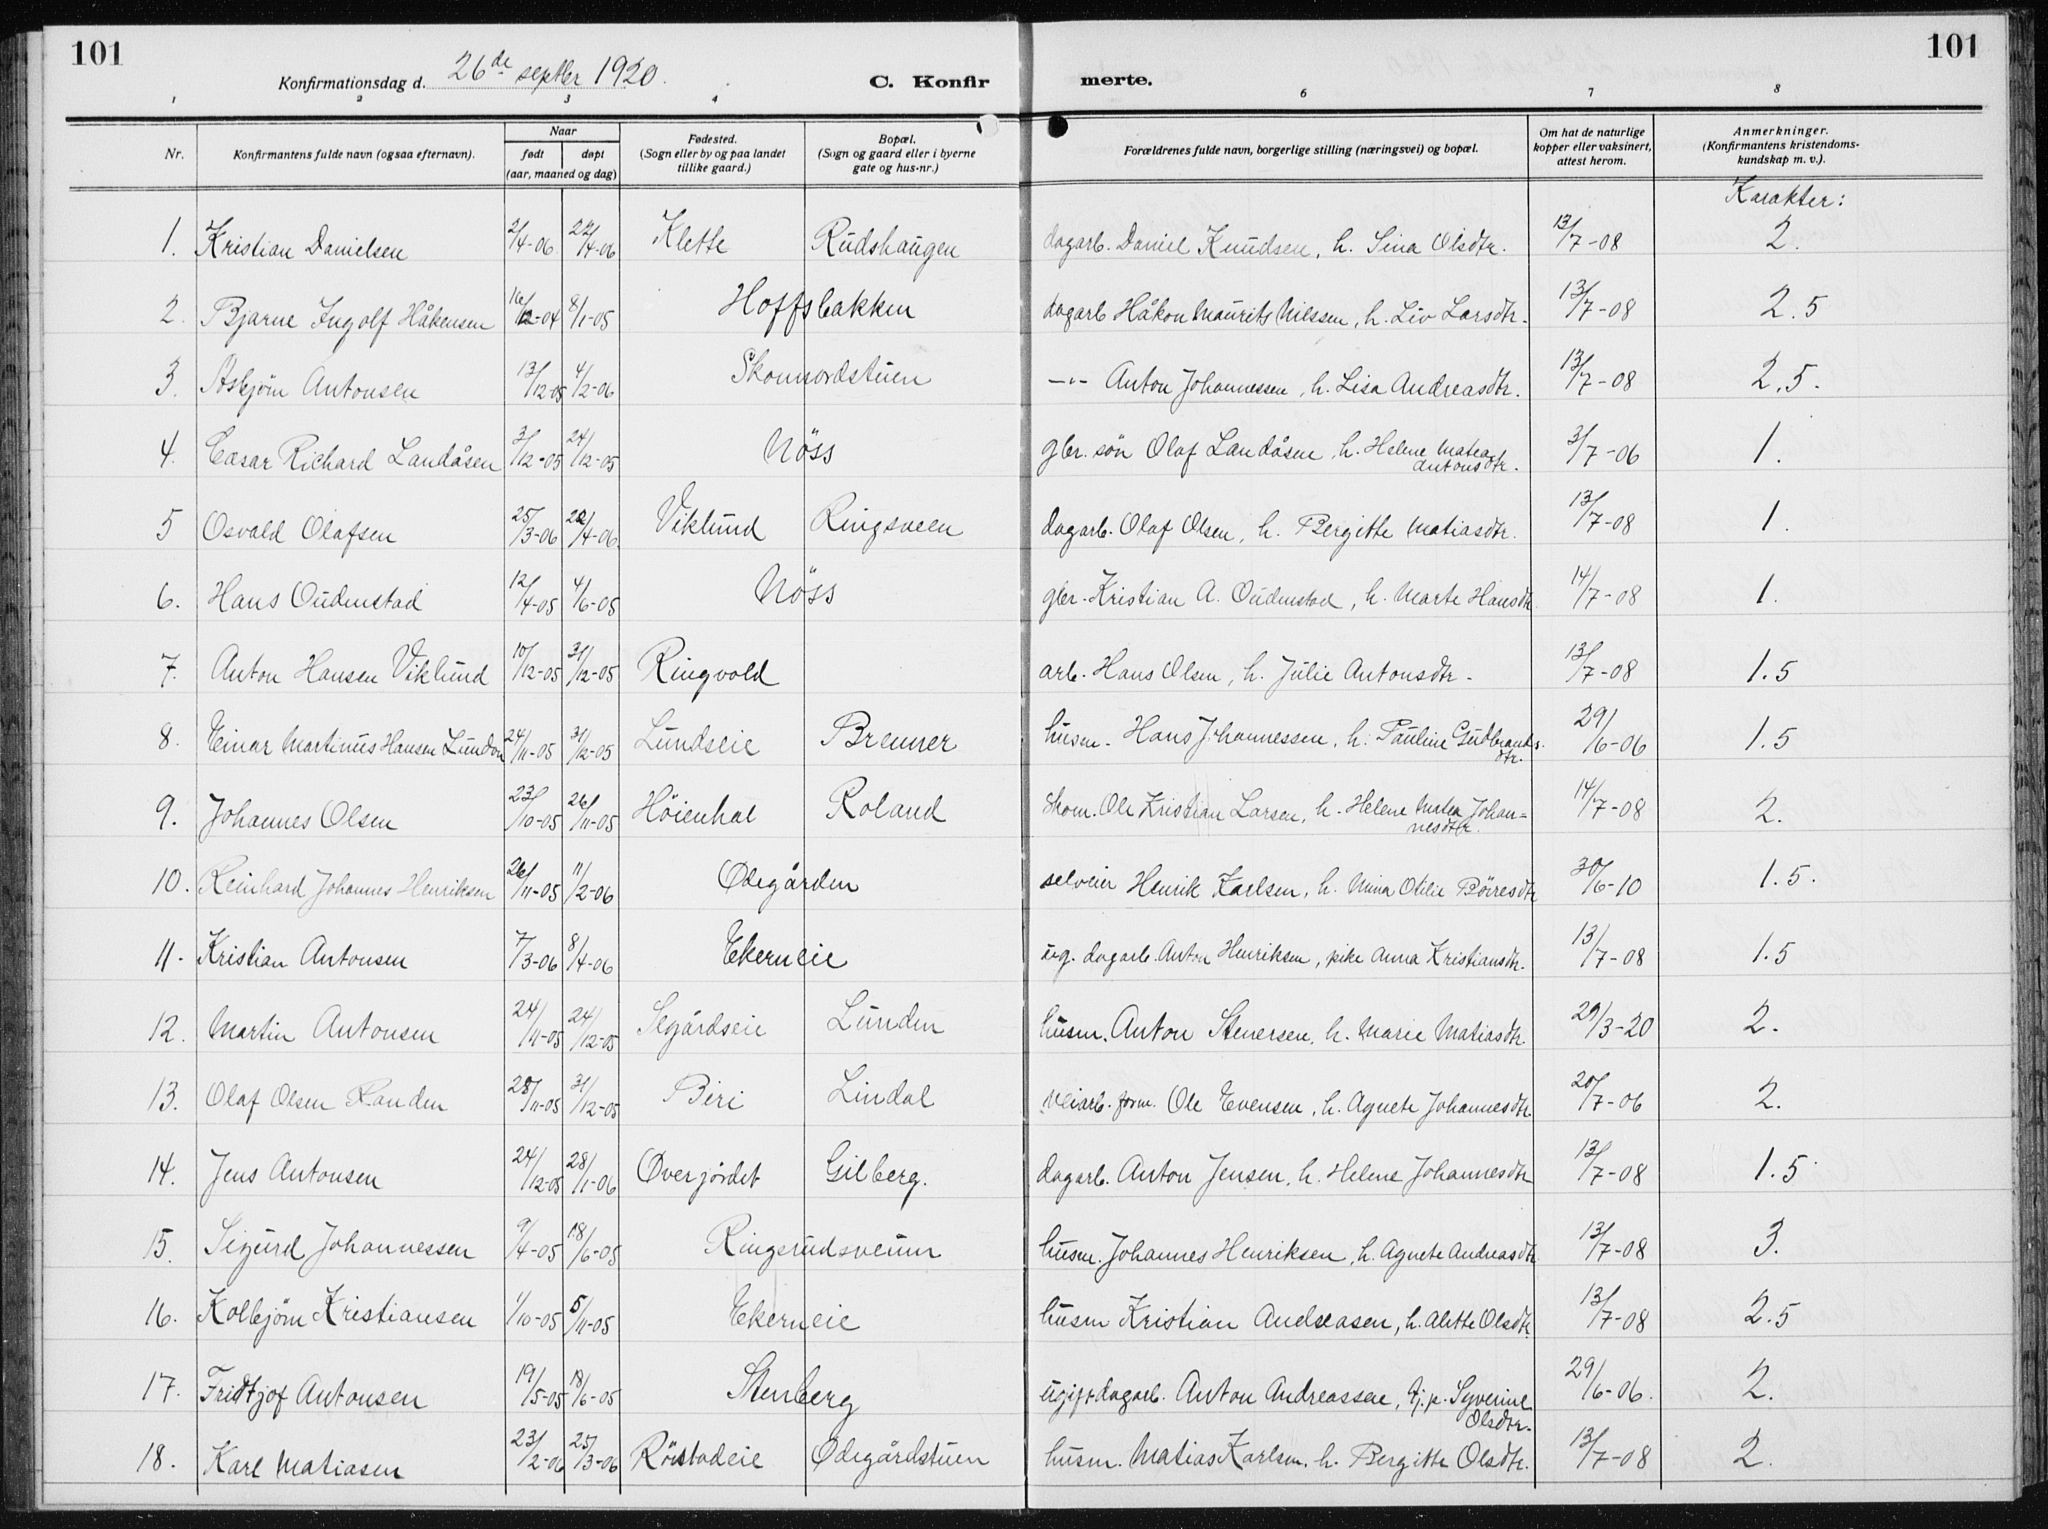 101
101
Konfirmationsdag d. 26de septbr 1920.
C. Konfirmerte.
1 2 3 4 6 7 8
Nr.
Konfirmantens fulde navn (ogsaa efternavn).
Naar
født døpt
(aar, maaned og dag)
Fødested.
(Sogn eller by og paa landet
tillike gaard.)
Bopæl.
(Sogn og gaard eller i byerne
gate og hus-nr.)
Forældrenes fulde navn, borgerlige stilling (næringsvei) og bopæl.
Om hat de naturlige
kopper eller vaksinert,
attest herom.
Anmerkninger.
(Konfirmantens kristendoms-
kundskap m. v.).
Karakter:
1. Kristian Danielsen 2/4-06 22/4-06 Klette Rudshaugen dagarb. Daniel Knudsen, h. Sina Olsdtr. 13/7-08 2.
2. Bjarne Ingolf Håkensen 16/12-04 8/1-05 Hoffsbakken dagarb Håkon Maurits Nilssen, h. Liv Larsdtr. 13/7-08 2.5
3. Asbjörn Antonsen 13/12-05 4/2-06 -"- Anton Johannessen, h. Lisa Andreasdtr. 13/7-08 2.5.
4. Cæsar Richard Landåsen 3/12-05 24/12-05 Nöss gbr. sön Olaf Landåsen, h. Helene Matea
Antonsdtr. 3/7-06 1.
5 Osvald Olafsen 25/3-06 22/4-06. Viklund Ringsveen dagarb. Olaf Olsen, h. Bergitte Matiasdtr. 13/7-08 1.
6. Hans Oudenstad 12/4-05 4/6-05 Nöss gbr. Kristian A. Oudenstad, h. Marte Hansdtr. 14/7-08 1.
7. Anton Hansen Viklund 10/12-05 31/12-05 Ringvold arb. Hans Olsen, h. Julie Antonsdtr. 13/7-08 1.5
8. Einar Martinus Hansen 24/11-05 31/12-05 Lundseie Brenner husm. Hans Johannessen, h. Pauline Gudbrands-
dtr. 29/6-06 1.5
9. Johannes Olsen 23/10-05 26/11-05 Höienhal Roland skom. Ole Kristian Larsen, h. Helene Matea Johan-
nesdtr. 14/7-08 2.
10. Reinhard Johannes Henriksen 26/11-05 11/2-06 Ødegården selveier Henrik Karlsen, h. Mina Otilie Börresdtr 30/6-10 1.5.
11. Kristian Antonsen 7/3-06 8/4-06 Ekerneie ug. dagarb. Anton Henriksen, pike Anna Kristiansdtr. 13/7-08 1.5
12. Martin Antonsen 24/11-05 24/12-05 Segårdseie Lunden husm. Anton Stenersen, h. Marie Matiasdtr. 29/3-20 2.
13. Olaf Olsen Randen 28/11-05 31/12-05 Biri Lindal veiarb. form. Ole Evensen, h. Agnete Johannesdtr. 20/7-06 2.
14. Jens Antonsen 24/12-05 28/1-06 Overjordet Gilberg. dagarb. Anton Jensen, h. Helene Johannesdtr 13/7-08 1.5
15. Sigurd Johannessen 9/4-05 18/6-05 Ringsrudsveum husm. Johannes Henriksen, h. Agnete Andreasdtr. 13/7-08 3.
16. Kolbjörn Kristiansen 1/10-05 5/11-05 Ekerneie husm Kristian Andreasen, h. Alette Olsdtr. 13/7-08 2.5
17. Fridtjof Antonsen 19/5-05 18/6-05 Stenberg ugift dagarb. Anton Andreassen, tj. p. Syverine
Olsdtr. 29/6-06. 2.
18. Karl Matiasen 23/2-06 25/3-06 Ødegårdstuen husm. Matias Karlsen, h. Bergitte Olsdtr. 13/7-08 2.